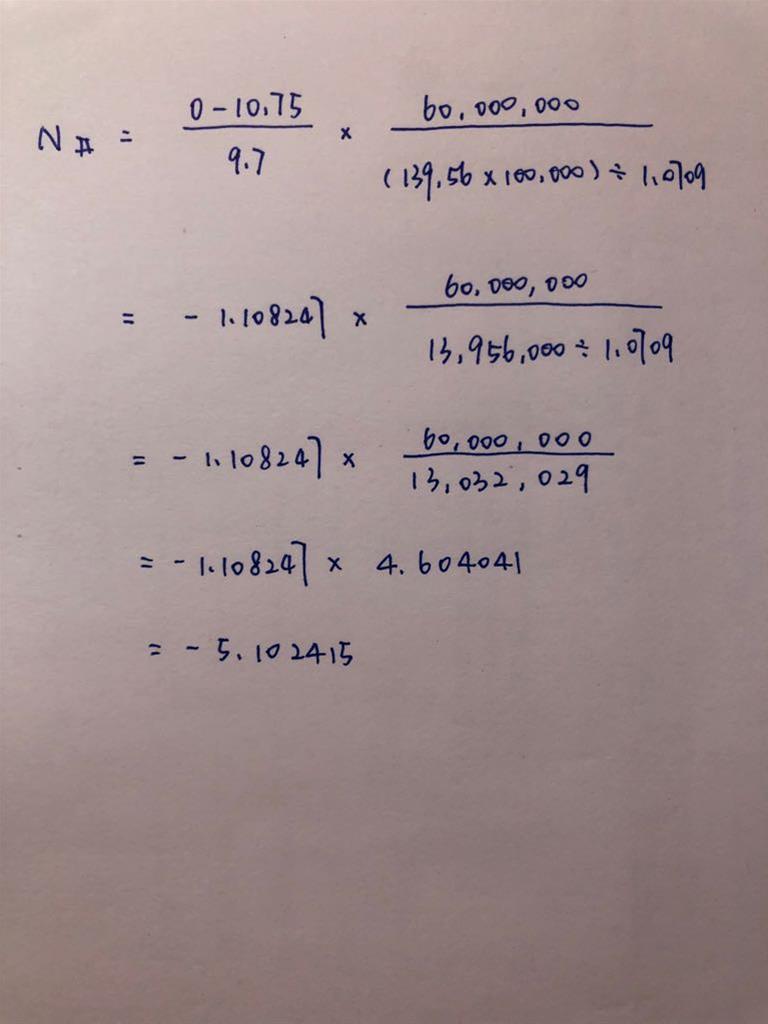 N # = (0 - 10.75) / 9.7 × 60,000,000 / ((139.56 × 100,000) ÷ 1.0709)
= - 1.108247 × 60,000,000 / (13,956,000 ÷ 1.0709)
= - 1.108247 × 60,000,000 / 13,032,029
= - 1.108247 × 4.604041
= - 5.102415